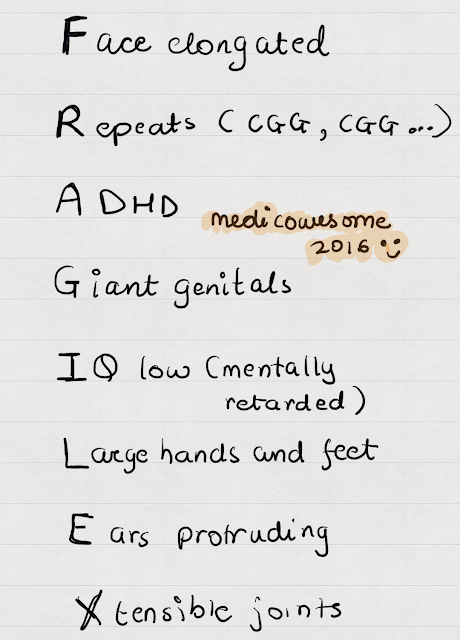 Face elongated
Repeats (CGG, CGG...)
ADHD
medicowesome
2016
Giant genitals
IQ low (mentally
retarded)
Large hands and feet
Ears protruding
Xtensible joints